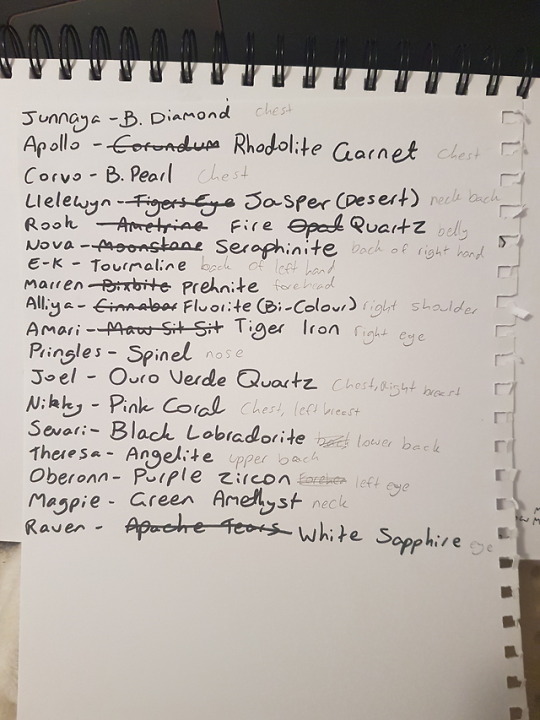 Junnaya - B. Diamond chest
Apollo - Corundum Rhodolite Garnet chest
Corvo - B. Pearl chest
Llelewyn - Tigers Eye Jasper (Desert) neck back
Rook - Ametrine Fire Opal Quartz belly
Nova - Moonstone Seraphinite back of right hand
E-K - Tourmaline back of left hand
Marren - Bixbite Prehnite forehead
Alliya - Cinnabar Fluorite (Bi-Colour) right shoulder
Amari - Maw Sit Sit Tiger Iron right eye
Pringles - Spinel nose
Joel - Ouro Verde Quartz Chest, right breast
Nikky - Pink Coral Chest, left breast
Sevari - Black Labradorite back lower back
Theresa - Angelite upper back
Oberonn - Purple Zircon left eye
Magpie - Green Amethyst neck
Raven - Apache Tears White Sapphire eye